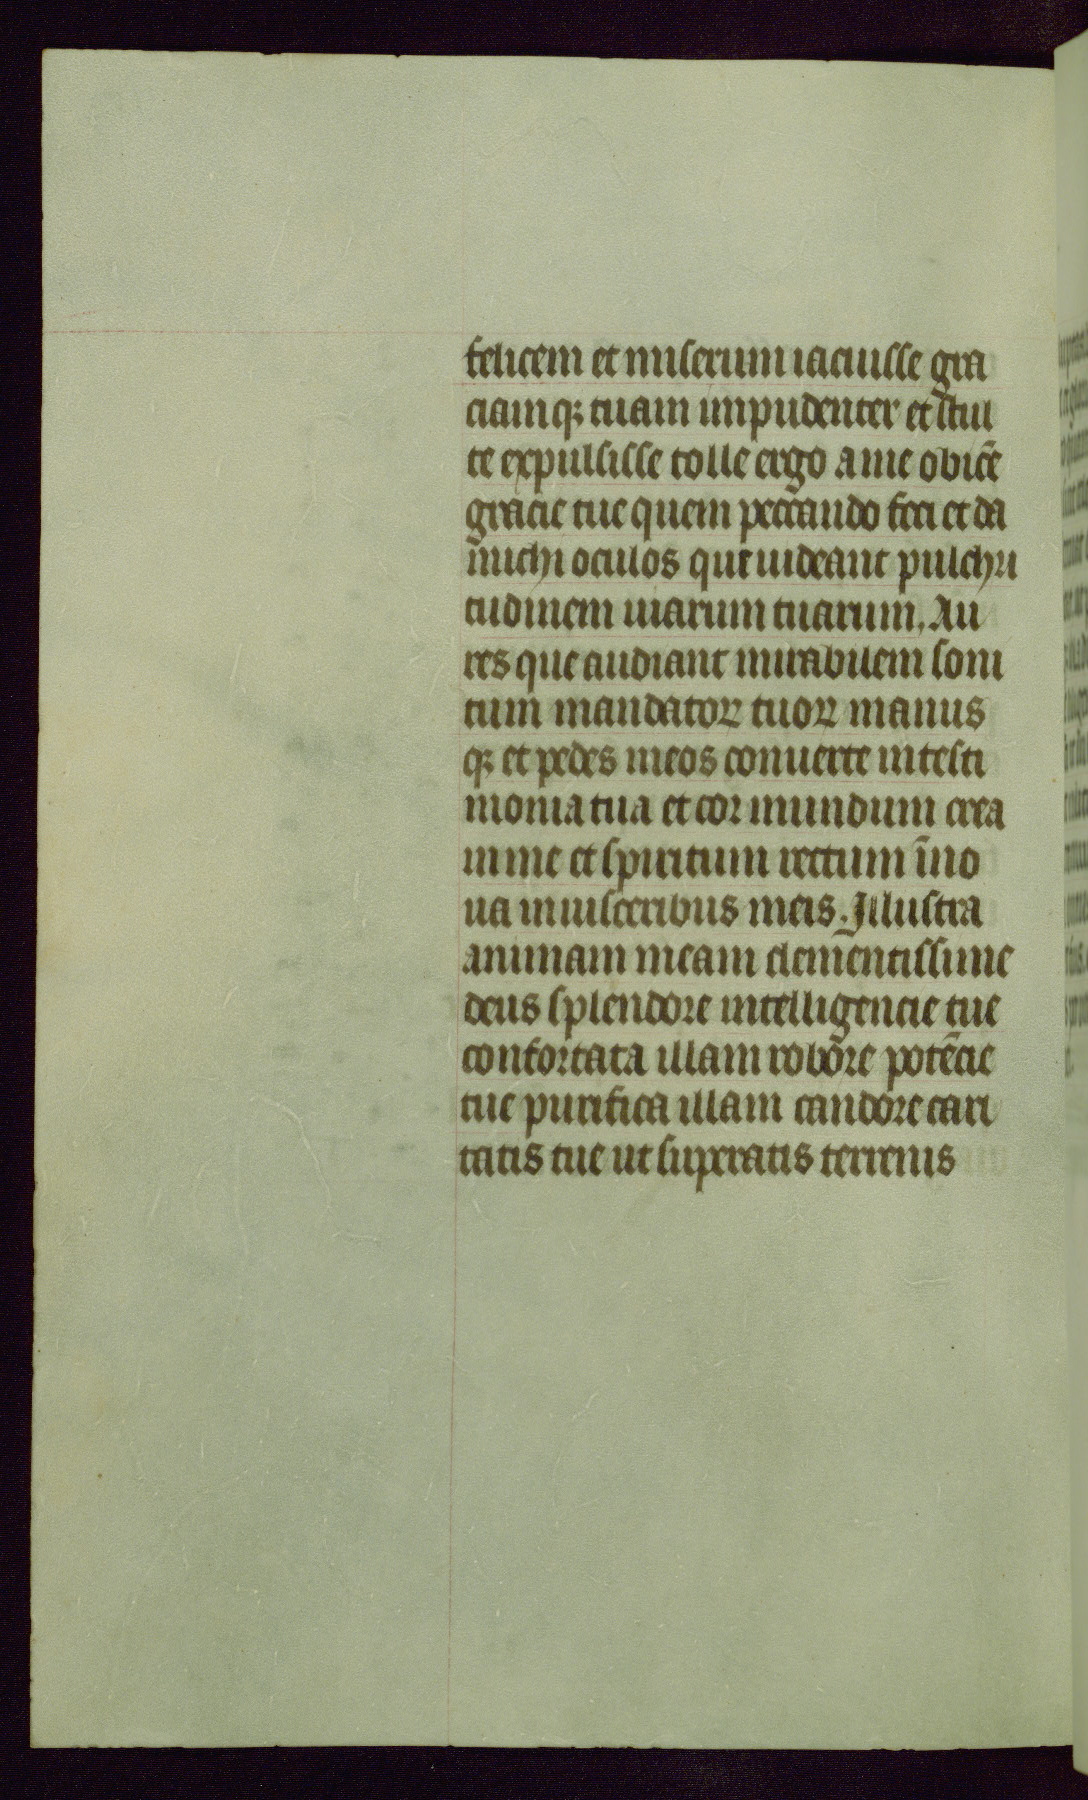 felicem et miserum iacuisse gra
ciamq; tuam impudenter et stul
te expulsisse tolle ergo a me obicē
gracie tue quem peccando feci et da
michi oculos qui uideant pulchri
tudinem uiarum tuarum. Au
res que audiant mirabilem soni
tum mandatoꝝ tuoꝝ manus
q; et pedes meos conuerte in testi
monia tua et cor mundum crea
in me et spiritum rectum īno
ua in uisceribus meis. Illustra
animam meam clementissime
deus splendore intelligencie tue
confortata illam robore potēcie
tue purifica illam candore cari
tatis tue ut superatis terrenis